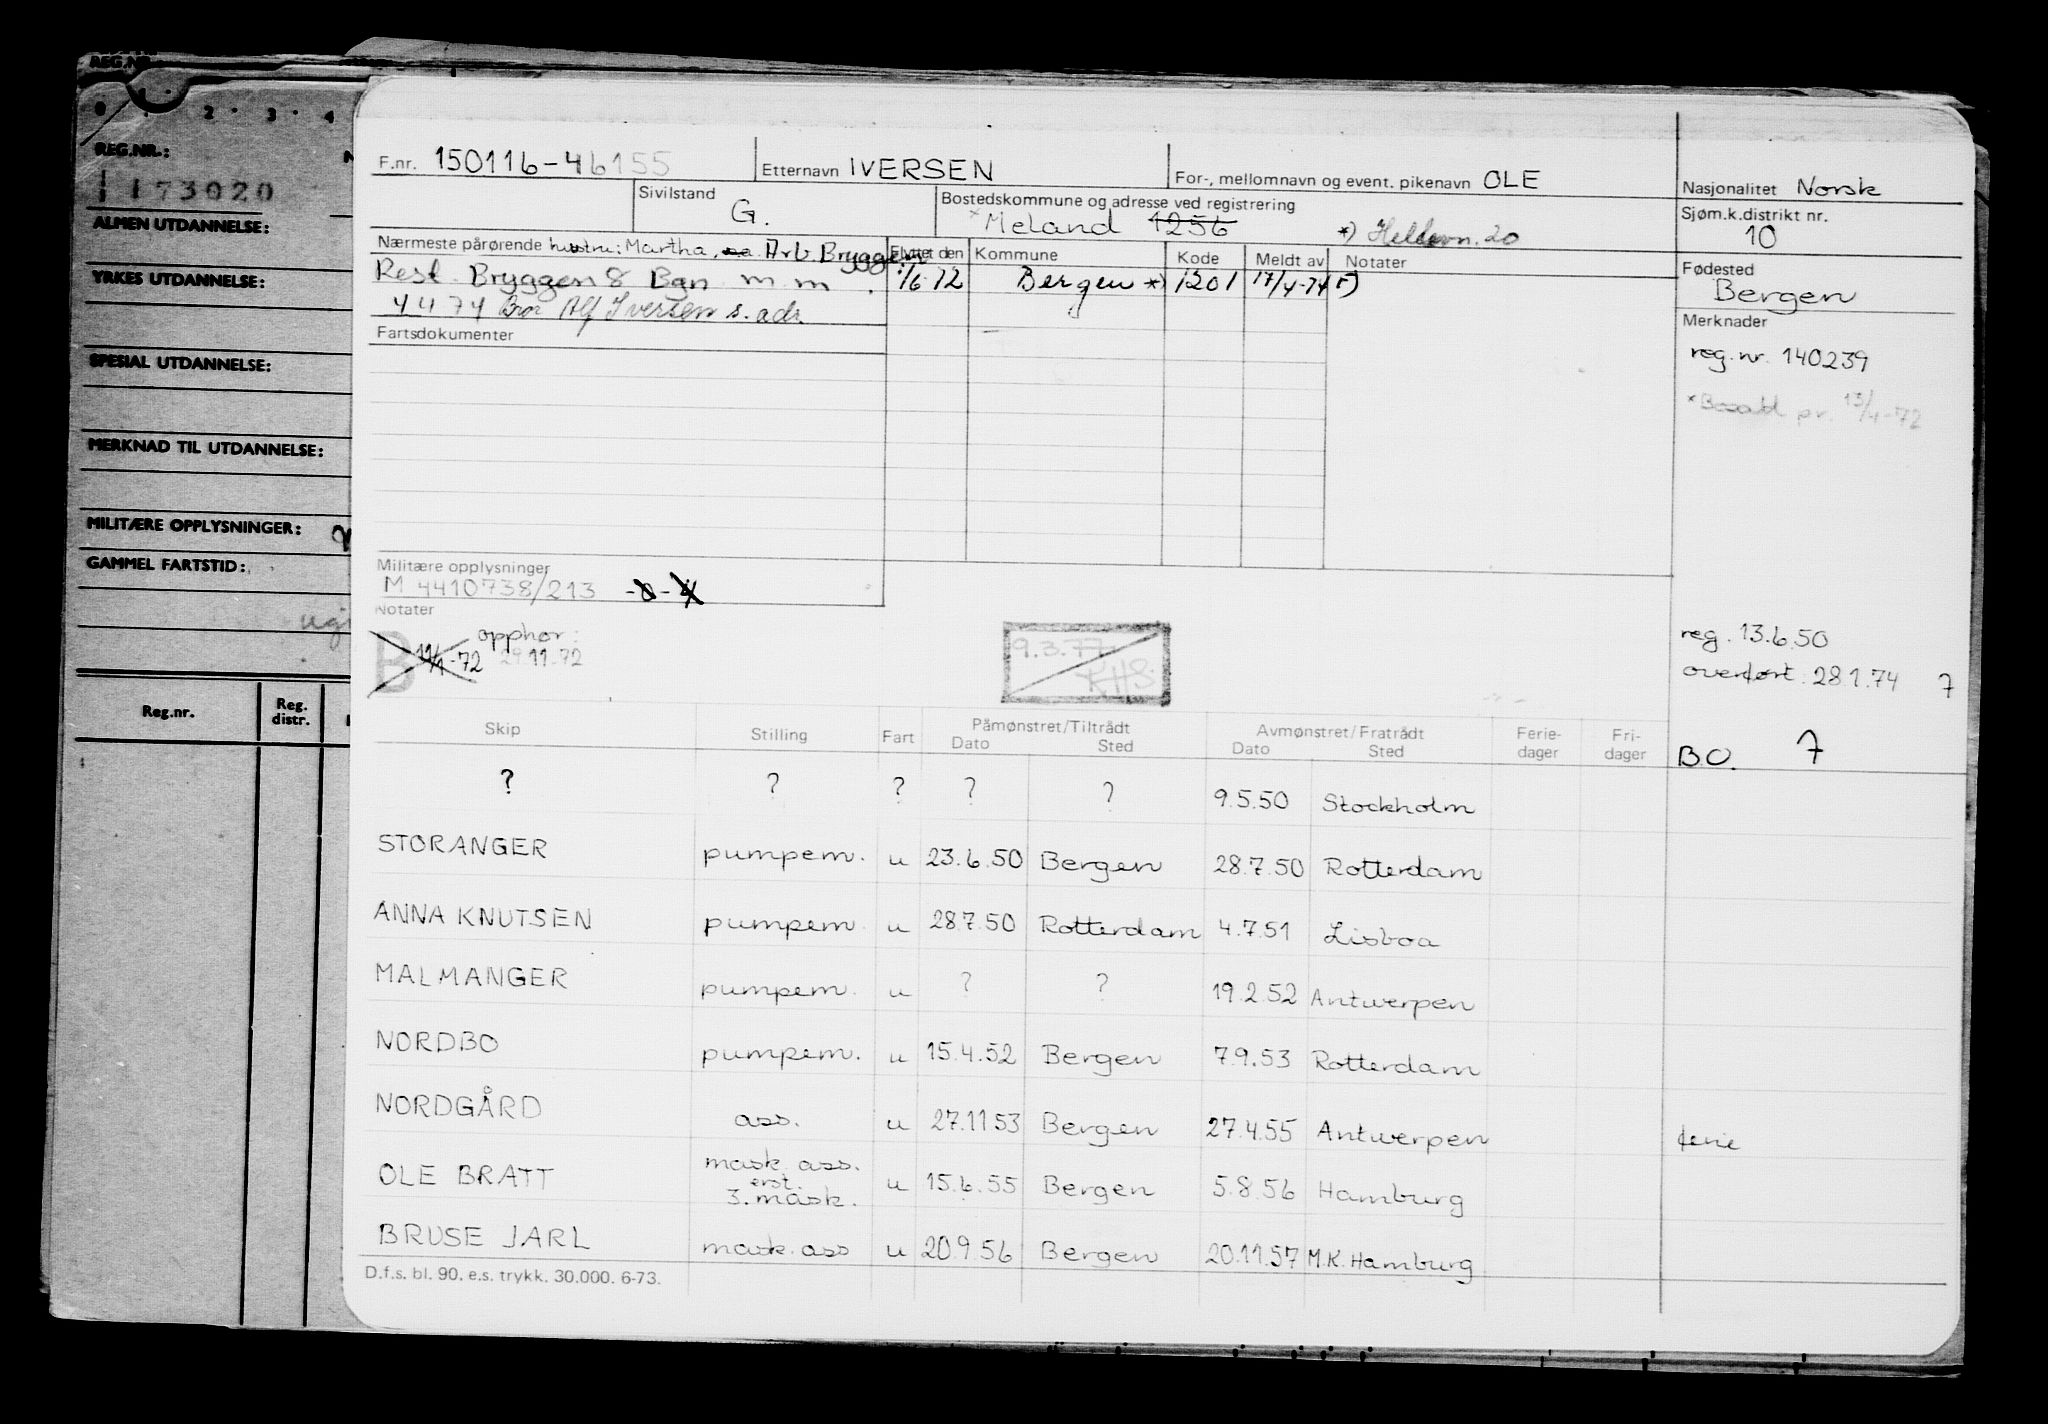 REG.NR.
0 1 2 3 4
REG.NR.:
173020
ALMEN UTDANNELSE:
YRKES UTDANNELSE:
SPESIAL UTDANNELSE:
MERKNAD TIL UTDANNELSE:
MILITÆRE OPPLYSNINGER:
GAMMEL FARTSTID:
Reg.nr. Reg. distr.
F.nr. 150116-46155 Etternavn IVERSEN For-, mellomnavn og event. pikenavn OLE Nasjonalitet Norsk
Sivilstand G. Bostedskommune og adresse ved registrering Sjøm.k.distrikt nr. 10
*Meland 1256 *)
Nærmeste pårørende hustru: Martha, Arb. Bryggen Flyttet den Kommune Kode Meldt av Notater Fødested
Rest. Bryggen 8 Bgn m.m. 1/6-72 Bergen *) 1201 17/4-74 Bergen
4474 Bror Alf Iversen s. adr.
Merknader
Fartsdokumenter
reg.nr. 140239
*Bosatt pr. 13/4-72
Militære opplysninger
M 4410738/213
Notater
B 11/1-72 opphør: 29.11.72
9.3.77 KHS
reg. 13.6.50
overført 28.1.74 7
Skip Stilling Fart Påmønstret/Tiltrådt Avmønstret/Fratrådt Ferie-dager Fri-dager
Dato Sted Dato Sted
B.O. 7
? ? ? ? ? 9.5.50 Stockholm
STORANGER pumpem. u 23.6.50 Bergen 28.7.50 Rotterdam
ANNA KNUTSEN pumpem. u 28.7.50 Rotterdam 4.7.51 Lisboa
MALMANGER pumpem. u ? ? 19.2.52 Antwerpen
NORDBO pumpem. u 15.4.52 Bergen 7.9.53 Rotterdam
NORDGÅRD ass. u 27.11.53 Bergen 27.4.55 Antwerpen ferie
OLE BRATT mask. ass. erst. 3. mask. u 15.6.55 Bergen 5.8.56 Hamburg
BRUSE JARL mask. ass u 20.9.56 Bergen 20.11.57 M.K. Hamburg
D.f.s. bl. 90. e.s. trykk. 30.000. 6-73.